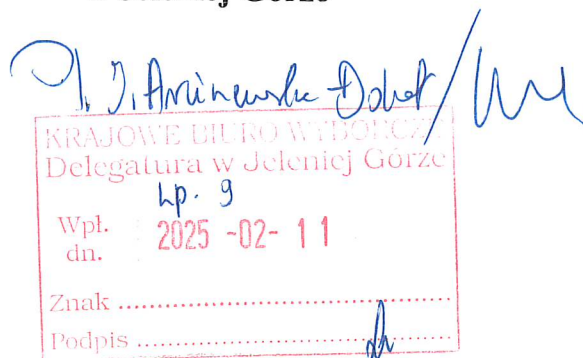 Jeleniej Górze
KRAJOWE BIURO WYBORCZE
Delegatura w Jeleniej Górze
Lp. 9
Wpł.
dn. 2025 -02- 11
Znak
Podpis